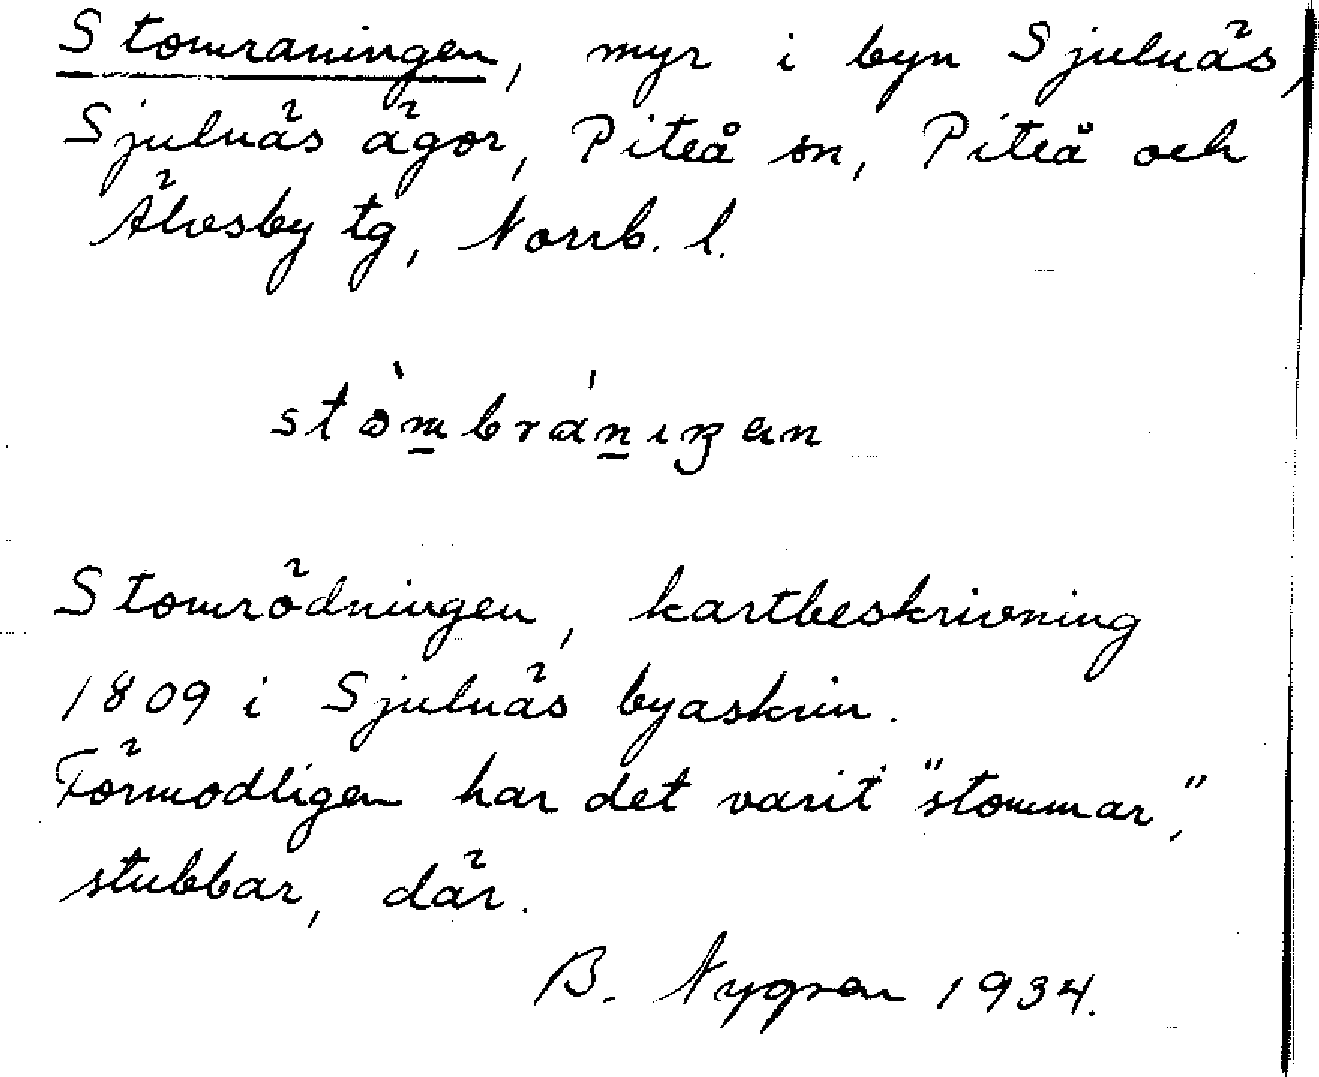 Stomraningen, myr i byn Sjulnäs,
Sjulnäs ägor, Piteå sn, Piteå och
Älvsby tg, Norrb. l.
stòm̲brán̲ıŋen
Stomrödningen, kartbeskrivning
1809 i Sjulnäs byaskrin.
Förmodligen har det varit "stommar",
stubbar, där.
B. Nygren 1934.